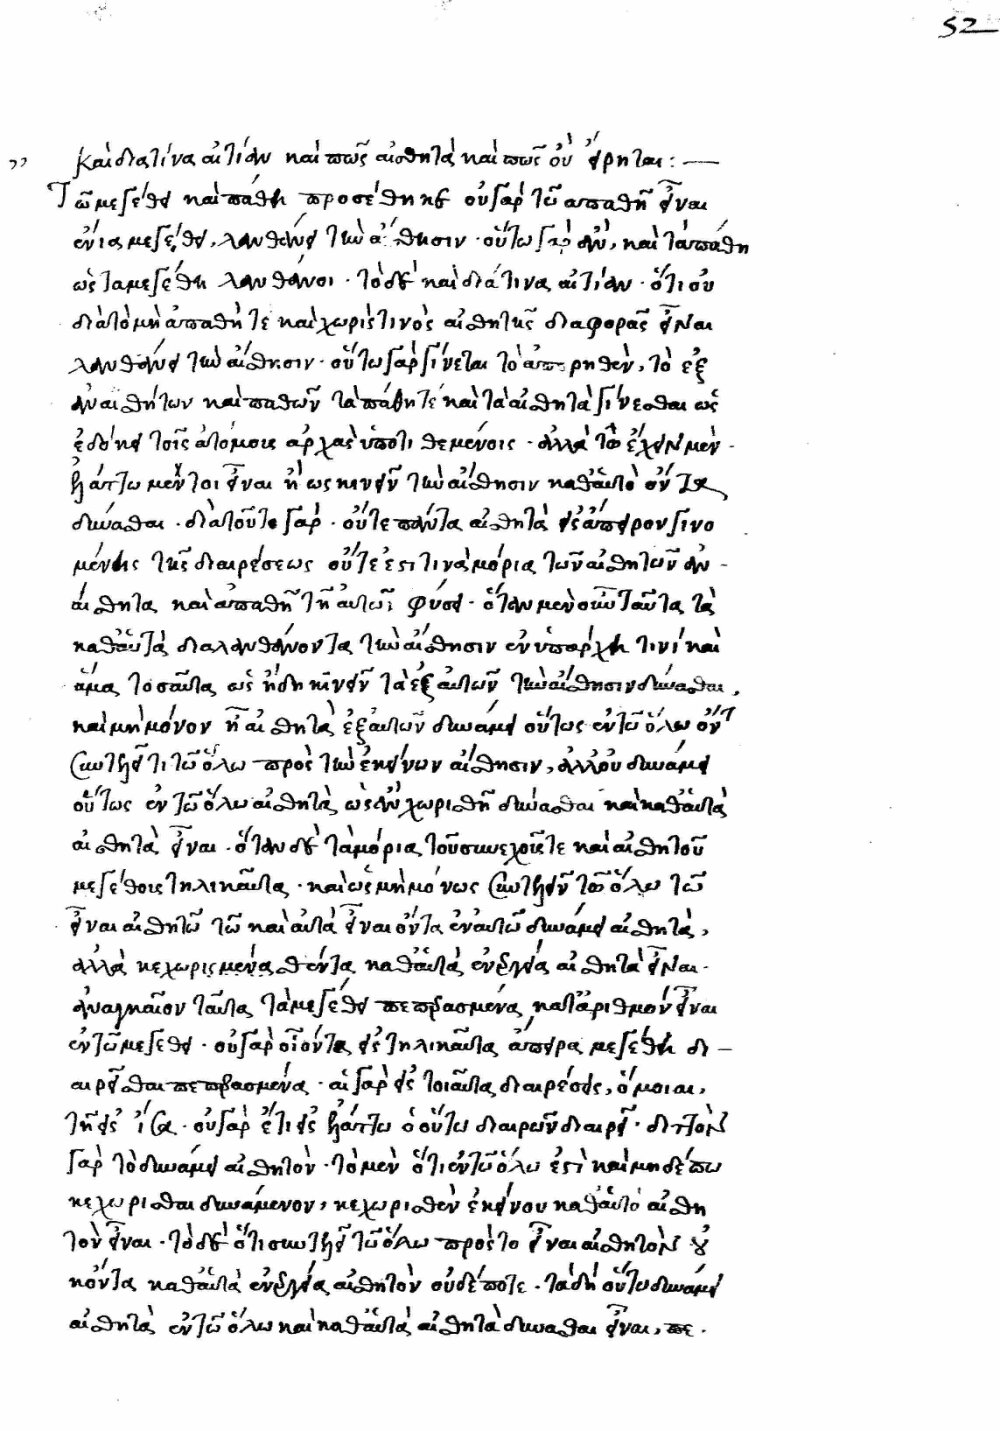 52
,, Καὶ διὰ τίνα αἰτίαν καὶ πῶς αἰσθητὰ καὶ πῶς οὔ εἴρηται : —
Τῶ μεγέθει καὶ πάθει προσέθηκεν οὐ γὰρ τῶ ἀπαθῆ εἶναι
ἔνια μεγέθει, λανθάνει τὴν αἴσθησιν · οὕτω γὰρ ἂν, καὶ τὰ πάθη
ὡς τὰ μεγέθη λανθάνοι · τὸ δὲ καὶ διὰ τίνα αἰτίαν · ὅτι οὐ
διὰ τὸ μὴ ἀπαθῆ τε καὶ χωρίς τινὸς αἰσθητῆς διαφορᾶς εἶναι
λανθάνει τὴν αἴσθησιν · οὕτω γὰρ γίνεται τὸ ἀπορηθὲν, τὸ ἐξ
ἀναισθήτων καὶ παθῶν τὰ πάθη τὲ καὶ τὰ αἰσθητὰ γίνεσθαι ὡς
ἐδόκει τοῖς ἀτόμους ἀρχὰς ὑποτιθεμένοις · ἀλλὰ τῶ ἔχειν μὲν
ἐλάττω μέντοι εἶναι ἢ ὡς κινεῖν τὴν αἴσθησιν καθαὑτὸ ὄντα
δύνασθαι · διὰ τοῦτο γὰρ · οὔτε πάντα αἰσθητὰ εἰς ἄπειρον γινο
μένης τῆς διαιρέσεως οὔτε ἐστί τινὰ μόρια τῶν αἰσθητῶν ἀν-
αίσθητα καὶ ἀπαθῆ τῇ αὐτῶν φύσει · ὅταν μὲν οὖν ταῦτα τὰ
καθαὑτὰ διαλανθάνοντα τὴν αἴσθησιν ἐνυπάρχη τινί καὶ
ἅμα τοσαῦτα ὡς ἤδη κινεῖν τὰ ἐξ αὐτῶν τὴν αἴσθησιν δύνασθαι,
καὶ μὴ μόνον ἦ αἰσθητὰ ἐξ αὐτῶν δυνάμει οὕτως ἐν τῶ ὅλω ὄντ
συντελεῖ τι τῶ ὅλω πρὸς τὴν ἐκείνων αἴσθησιν, ἀλλ' οὐ δυνάμει
οὕτως ἐν τῶ ὅλω αἰσθητὰ ὡς ἂν χωρισθῆ δύνασθαι καὶ καθαὑτὰ
αἰσθητὰ εἶναι · ὅταν δὲ τὰ μόρια τοῦ συνεχοῦς τε καὶ αἰσθητοῦ
μεγέθους τηλικαῦτα · καὶ ὡς μὴ μόνως συντελεῖν τῶ ὅλω τῶ
εἶναι αἰσθητῶ τῶ καὶ αὐτὰ εἶναι ὄντα ἐν αὐτῶ δυνάμει αἰσθητὰ,
ἀλλὰ κεχωρισμένα θέντα καθαὑτὰ ἐνεργεία αἰσθητὰ εἶναι ·
ἀναγκαῖον ταῦτα τὰ μεγέθει πεπερασμένα κατ' ἀριθμὸν εἶναι
ἐν τῶ μεγέθει · οὐ γὰρ οἷόν τε εἰς τηλικαῦτα ἄπειρα μεγέθη δι-
αιρεῖσθαι πεπερασμένα · αἱ γὰρ εἰς τοιαῦτα διαιρέσεις, ὅμοιαι,
τῆ εἰς ἴσα · οὐ γὰρ ἔτι εἰς ἐλάττω ὁ οὕτω διαιρῶν διαιρεῖ · διττὸν
γὰρ τὸ δυνάμει αἰσθητὸν · τὸ μὲν ὅτι ἐν τῶ ὅλω ἐστὶ καὶ μηδέπω
κεχωρίσθαι δυνάμενον, κεχωρισθὲν ἐκείνου καθαὑτὸ αἰσθη
τὸν εἶναι · τὸ δὲ ὅτι συντελεῖ τῶ ὅλω πρὸς τὸ εἶναι αἰσθητὸν οὐ
κ' ὄντα καθαὑτὰ ἐνεργεία αἰσθητὸν οὐδέποτε · τὰ δὴ οὕτω δυνάμει
αἰσθητὰ ἐν τῶ ὅλω καὶ καθαὑτὰ αἰσθητὰ δύνασθαι εἶναι, πε ·